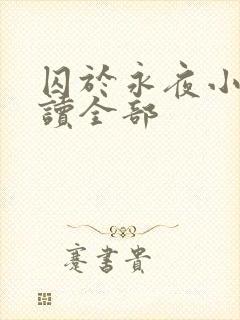 囚於永夜小
讀全部
蹇書貴